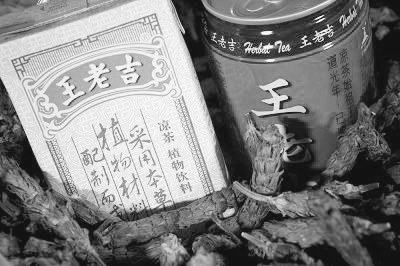 王老吉
凉茶 植物饮料
采用本草
植物材料
配制而
王老吉 Herbal Tea 王老吉 Herbal Tea
王老
凉茶始祖
道光年 已